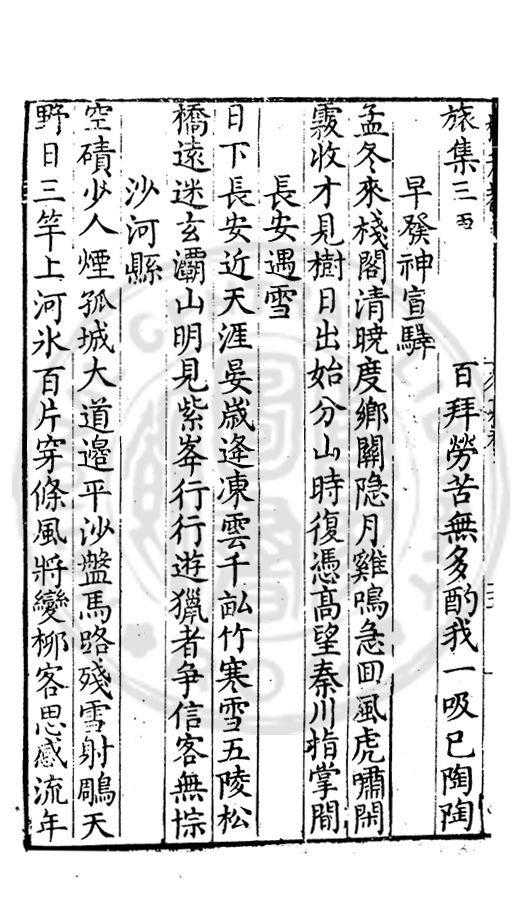 旅集三五
百拜勞苦無多酌我一吸已陶陶
早發神宣驛
孟冬來棧閣清曉度鄉關隐月雞鳴急囬風虎嘯閑
霧收才見樹日出始分山時復憑高望秦川指掌間
長安遇雪
日下長安近天涯晏歲逢凍雲千畝竹寒雪五陵松
橋遠迷玄灞山明見紫峯行行遊獵者爭信客無悰
沙河縣
空磧少人煙孤城大道邉平沙盤馬路殘雪射鵰天
野日三竿上河氷百片穿條風將變柳客思感流年